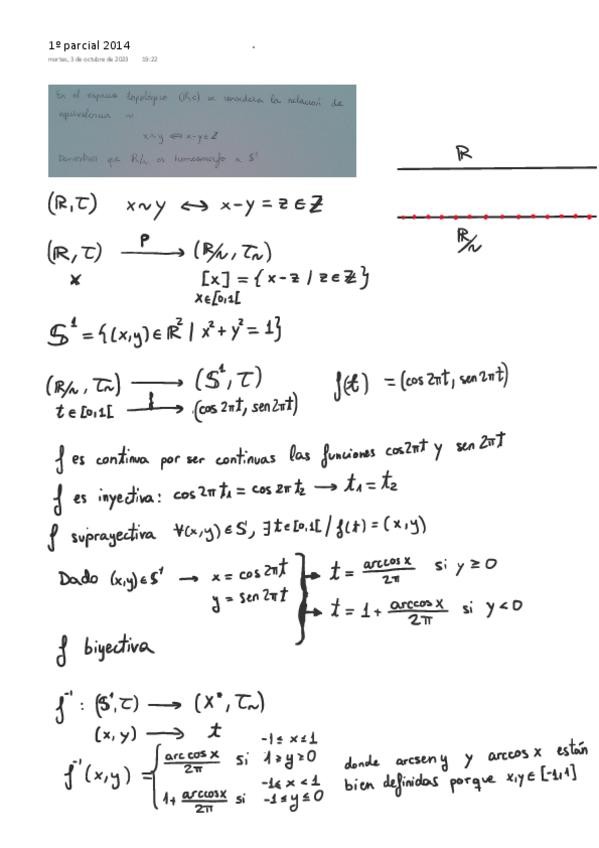 1º parcial 2014
martes, 3 de octubre de 2023 19:22
En el espacio topológico (R,τ) se considera la relación de
equivalencia ~
x~y ⇔ x-y∈Z
Demostrar que R/~ es homeomorfo a S¹
ℝ
ℝ/~
(ℝ,τ) x~y ↔ x-y = z ∈ ℤ
(ℝ,τ) —p→ (ℝ/~, τ~)
x [x] = {x-z / z∈ℤ}
x∈[0,1[
S¹ = {(x,y)∈ℝ² | x²+y²=1}
(ℝ/~, τ~) ⟶ (S¹,τ) f(t) = (cos 2πt, sen 2πt)
t∈[0,1[ —f→ (cos 2πt, sen 2πt)
f es continua por ser continuas las funciones cos 2πt y sen 2πt
f es inyectiva: cos 2π t₁ = cos 2π t₂ → t₁ = t₂
f suprayectiva ∀(x,y)∈S¹, ∃t∈[0,1[ / f(t) = (x,y)
Dado (x,y)∈S¹ → x = cos 2πt → t = arccos x / 2π si y ≥ 0
y = sen 2πt → t = 1 + arccos x / 2π si y < 0
f biyectiva
f⁻¹: (S¹,τ) ⟶ (X*, τ~)
(x,y) ⟶ t
f⁻¹(x,y) = { arc cos x / 2π si -1≤x≤1 1≥y≥0
1 + arccos x / 2π si -1≤x<1 -1≤y≤0
donde arcsen y y arccos x están
bien definidas porque x,y∈[-1,1]